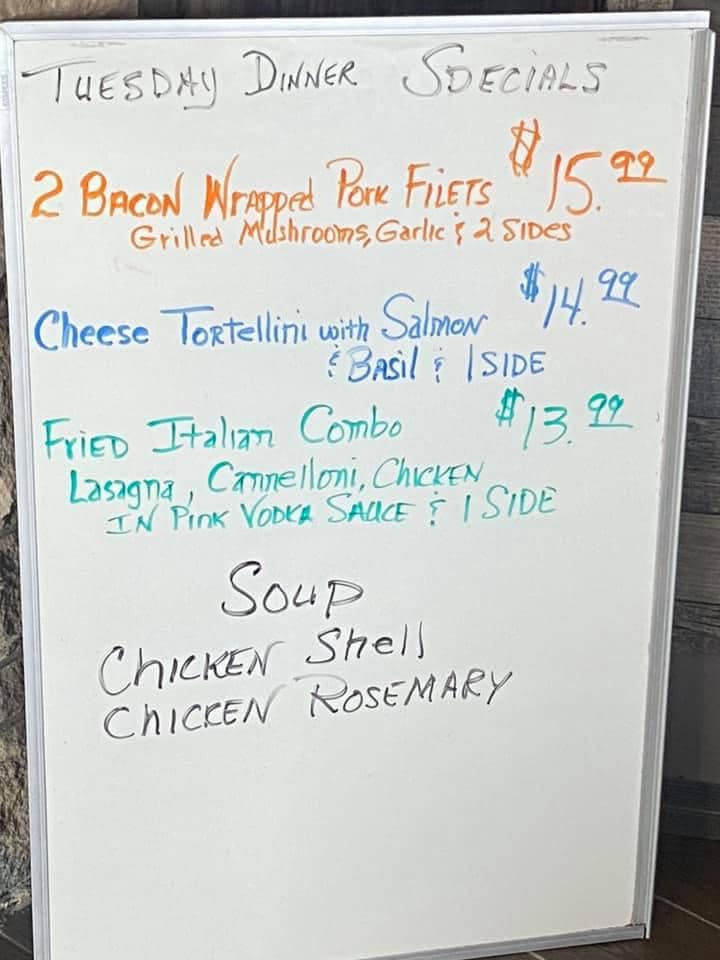 TUESDAY DINNER SPECIALS
2 BACON WRAPPED PORK FILETS $15.99
Grilled Mushrooms, Garlic & 2 SIDES
Cheese Tortellini with Salmon $14.99
& BASIL & 1 SIDE
FRIED Italian Combo $13.99
Lasagna, Cannelloni, CHICKEN
IN PINK VODKA SAUCE & 1 SIDE
SOUP
CHICKEN Shell
CHICKEN ROSEMARY